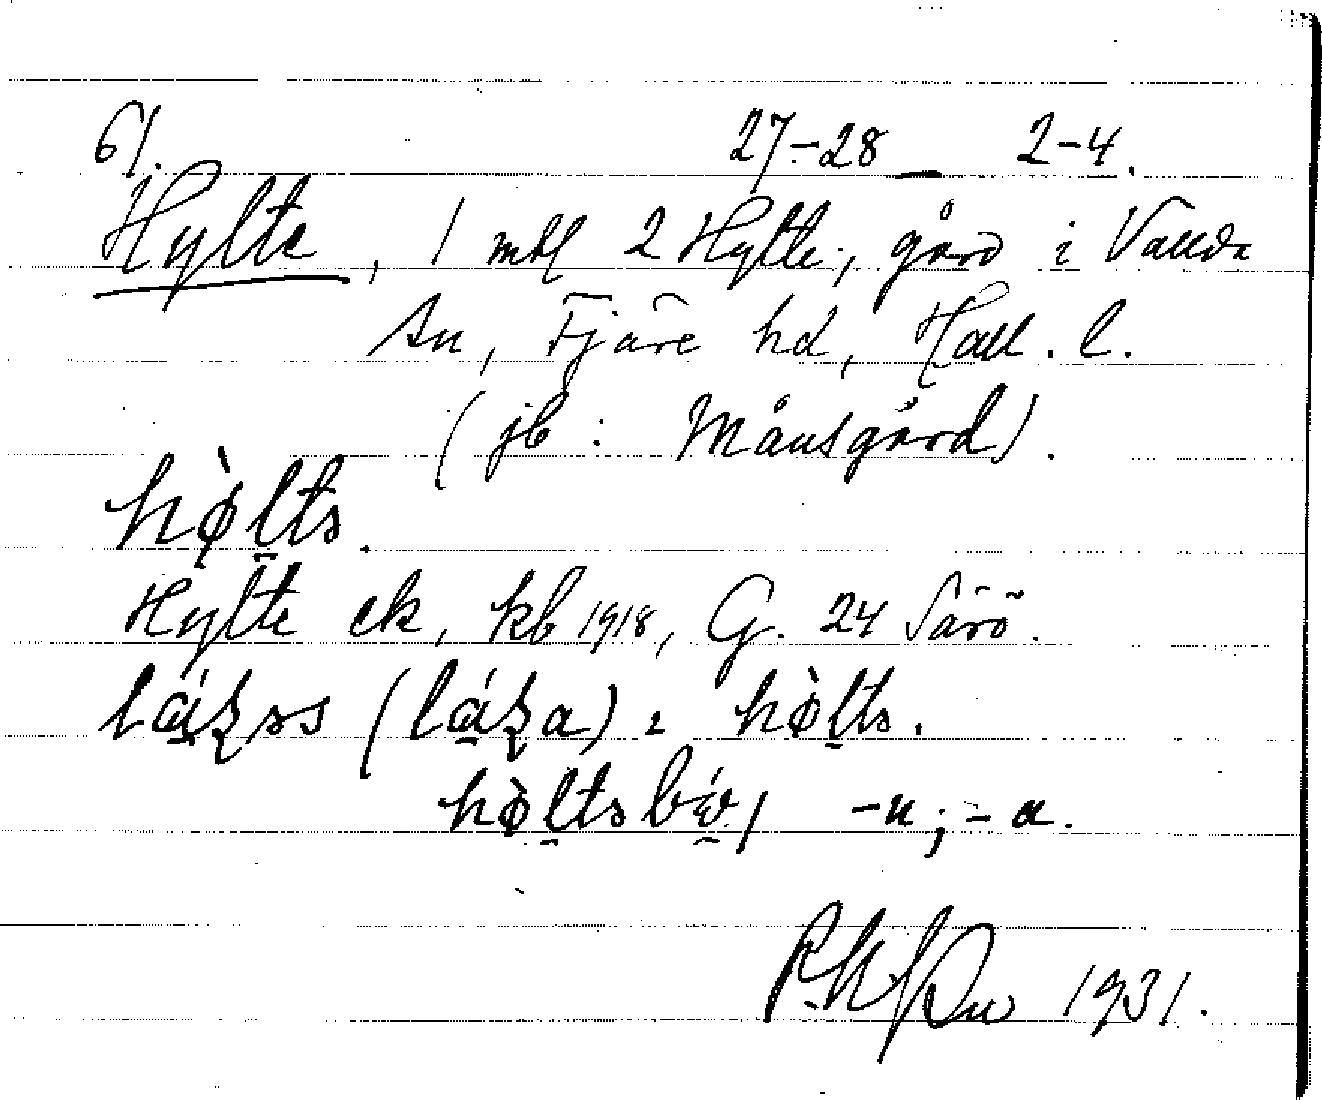 61.
27-28 — 2-4.
Hylte, 1 mtl 2 Hylte, gård i Vallda
sn, Fjäre hd, Hall. l.
(jb: Månsgård).
hø̀lts.
Hylte ek, kb 1918, G. 24 Särö.
hø̀lts.
hø̀lts -n; -a.
1931.